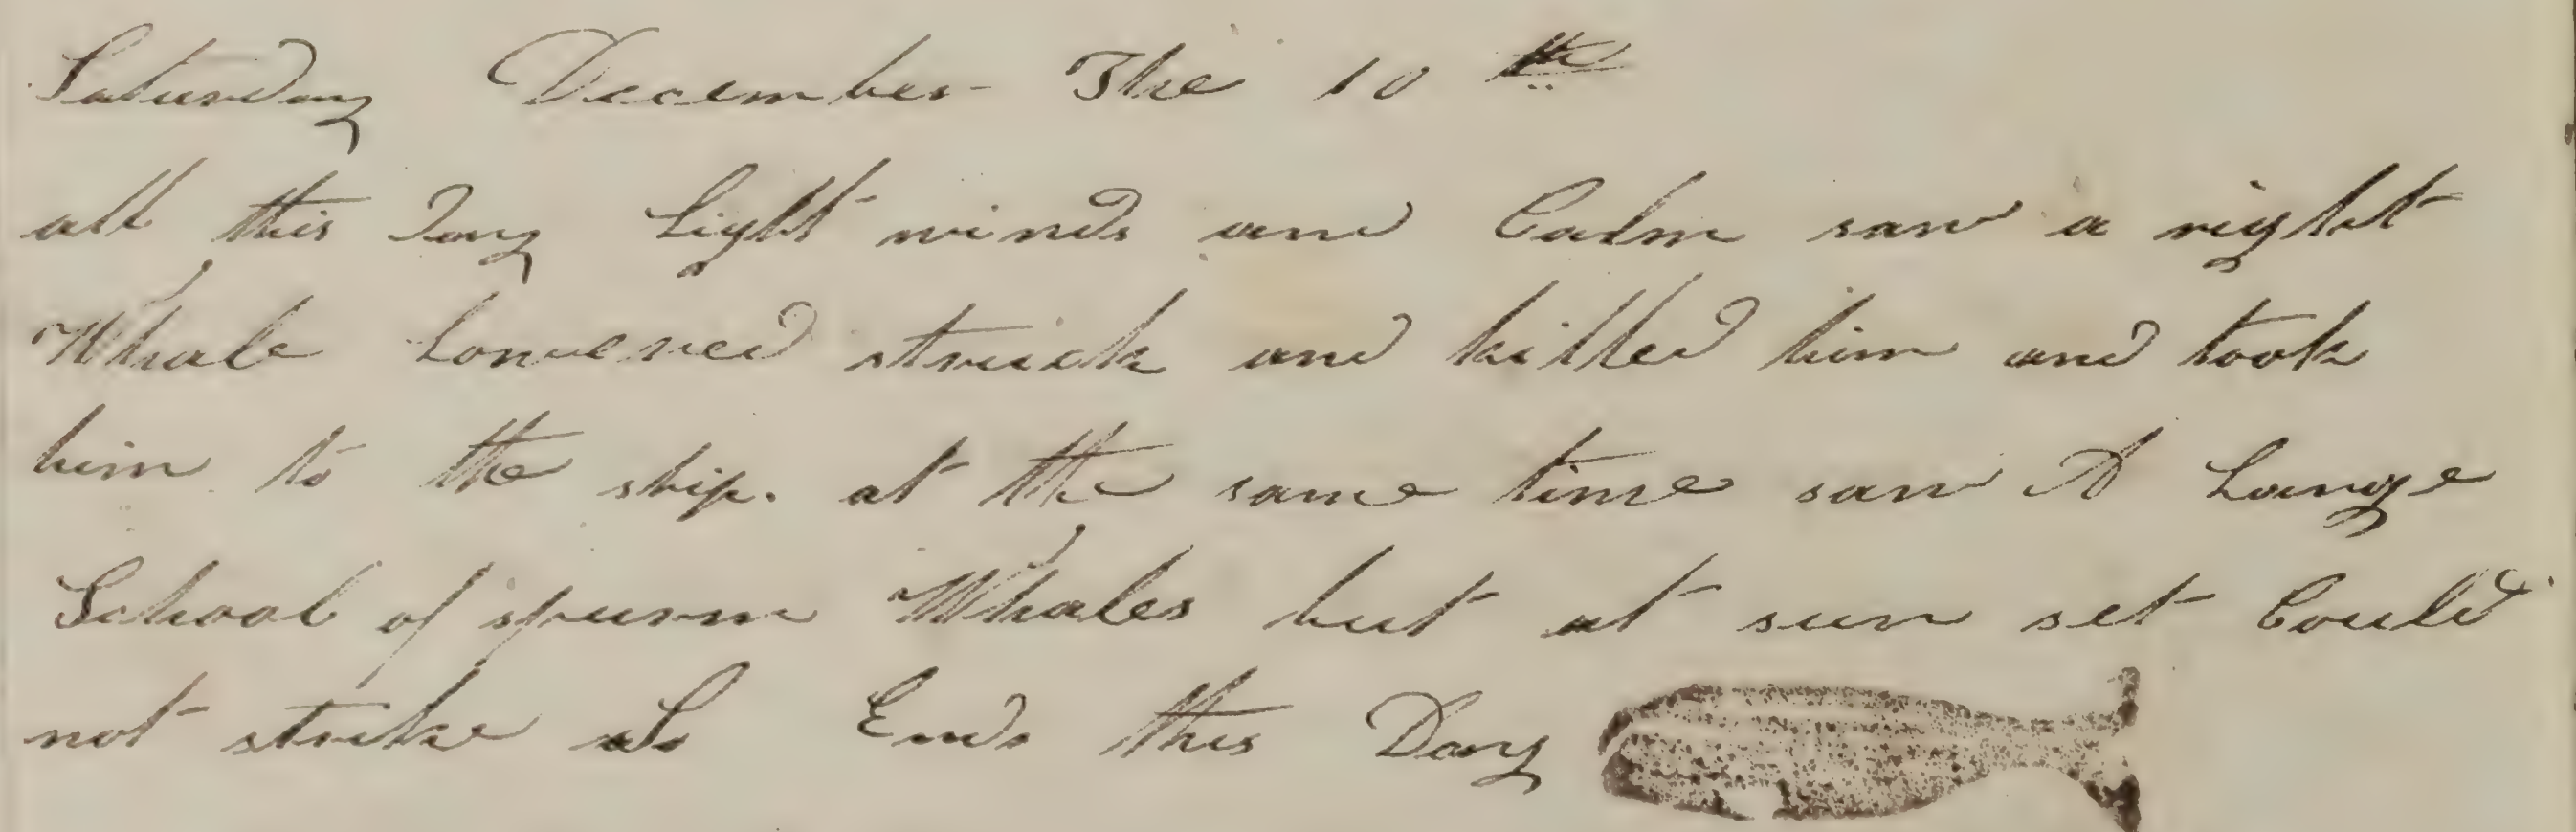 Saturday December The 10th
all this Day Light winds and Calm saw a right
Whale Lowered struck and killed him and took
him to the ship. at the same time saw A Large
School of spurm Whales but at sun set Could
not strike So Ends this Day